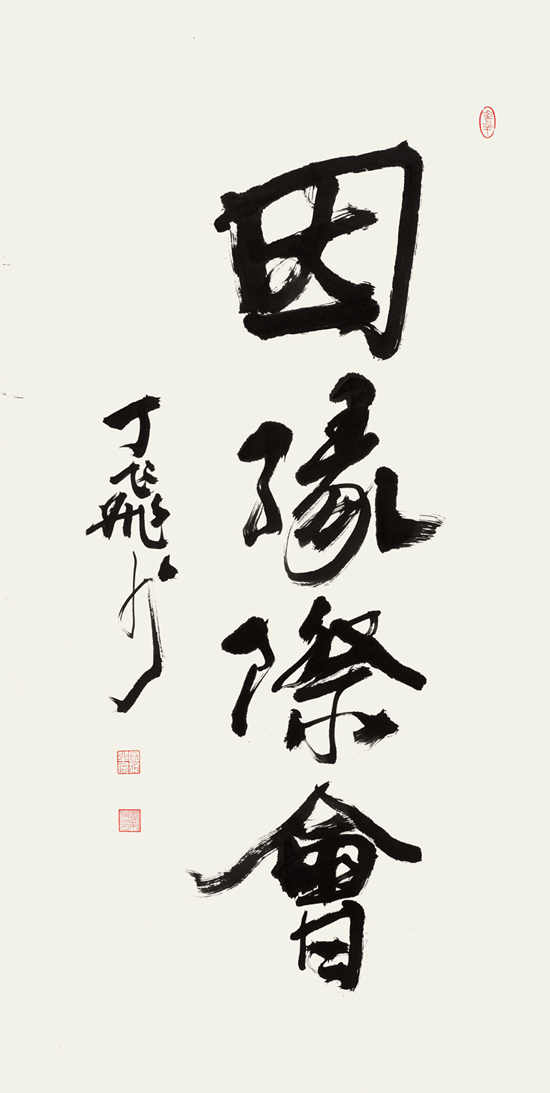 因緣際會
丁飛